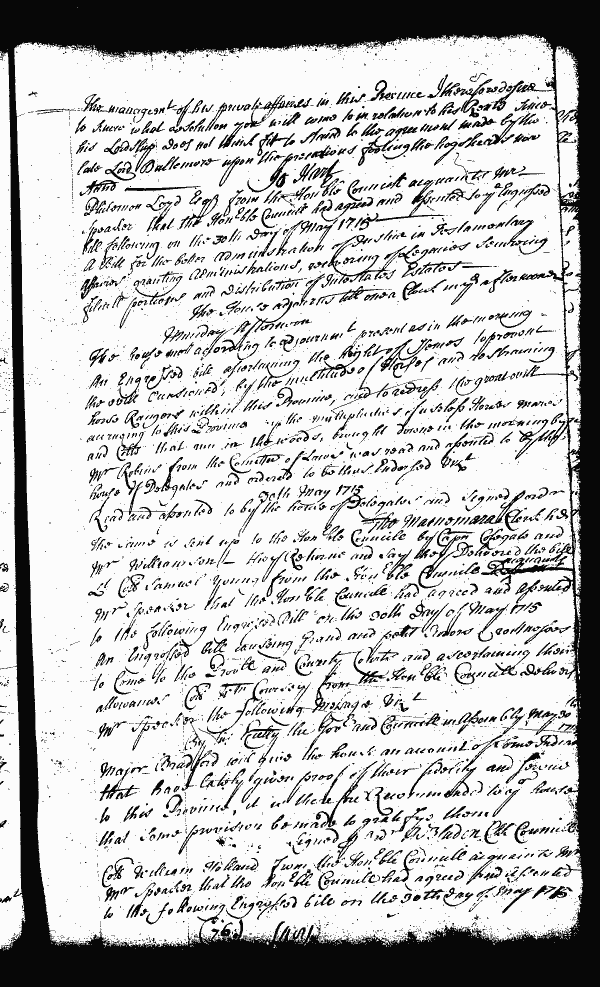 The managem.t of his private affaires in this Province I therefore desire
to know what resolution you will come to in relation to his Rents since
his Lordship does not think fitt to stand to the agreement made by the
late Lord Baltemore upon the the hogsheads now
Philemon Loyd Esq.r from the Hon.ble Councill acquaints M.r
Speaker that the Hon.ble Councill had agreed and assented to y.e Engrossed
bill following on the 30th Day of May 1715
A Bill for the better administration of Justice in Testamentary
affaires granting administrations, recovering of Legacies securing
filiall portions and distribution of Intestates Estates
The House adjourns till one a Clock in y.e afternoone
Munday Afternoon
The house mett according to adjournm.t present as in the morning
An Engrossed bill ascertaining the hight of ffences to prevent
the evill occasioned by the multitude of Horses and restraining
horse Rangers within this Province, and to redress the great evill
accruing to this Province by the multiplicities of useless Horses mares
and Colts that run in the woods, brought downe in the morning by
M.r Robins from the Com̃ttee of Laws was read and assented to by this
house of Delegates and ordered to be thus Endorsed Viz.t
30th May 1715
Read and assented to by the house of Delegates and signed p ord.r
Tho Macnemara Clerk h D
the same is sent up to the Hon.ble Councill by Cap.n and
M.r Williamson they Returne and say they Delivered the bill
L.t Co.ll Samuel Young from the Hon.ble Councill acquaints
M.r Speaker that the Hon.ble Councill had agreed and assented
to the following Engrossed Bill on the 30th Day of May 1715
An Engrossed bill causing Grand and petit Jurors & wittnesses
to Come to the Provll and County Courts and ascertaining their
allowances Co.ll Coursey from the Hon.ble Councill delivers
M.r Speaker the following Message Viz.t
By his Exc.y the Gov.r and Councill in Assembly May 30th
1715
Major Bradford will give the house an account of some Indians
that have lately given proof of their fidelity and service
to this Province, it is therefore Recommended to y.r house
that some provision be made to gratifye them
Signed p ord.r W Bladen Cl Councill
Co.ll William Holland from the Hon.ble Councill acquaints M.r
M.r Speaker that the Hon.ble Councill had agreed and assented
to the following Engrossed bill on the 30th day of May 1715
(76)